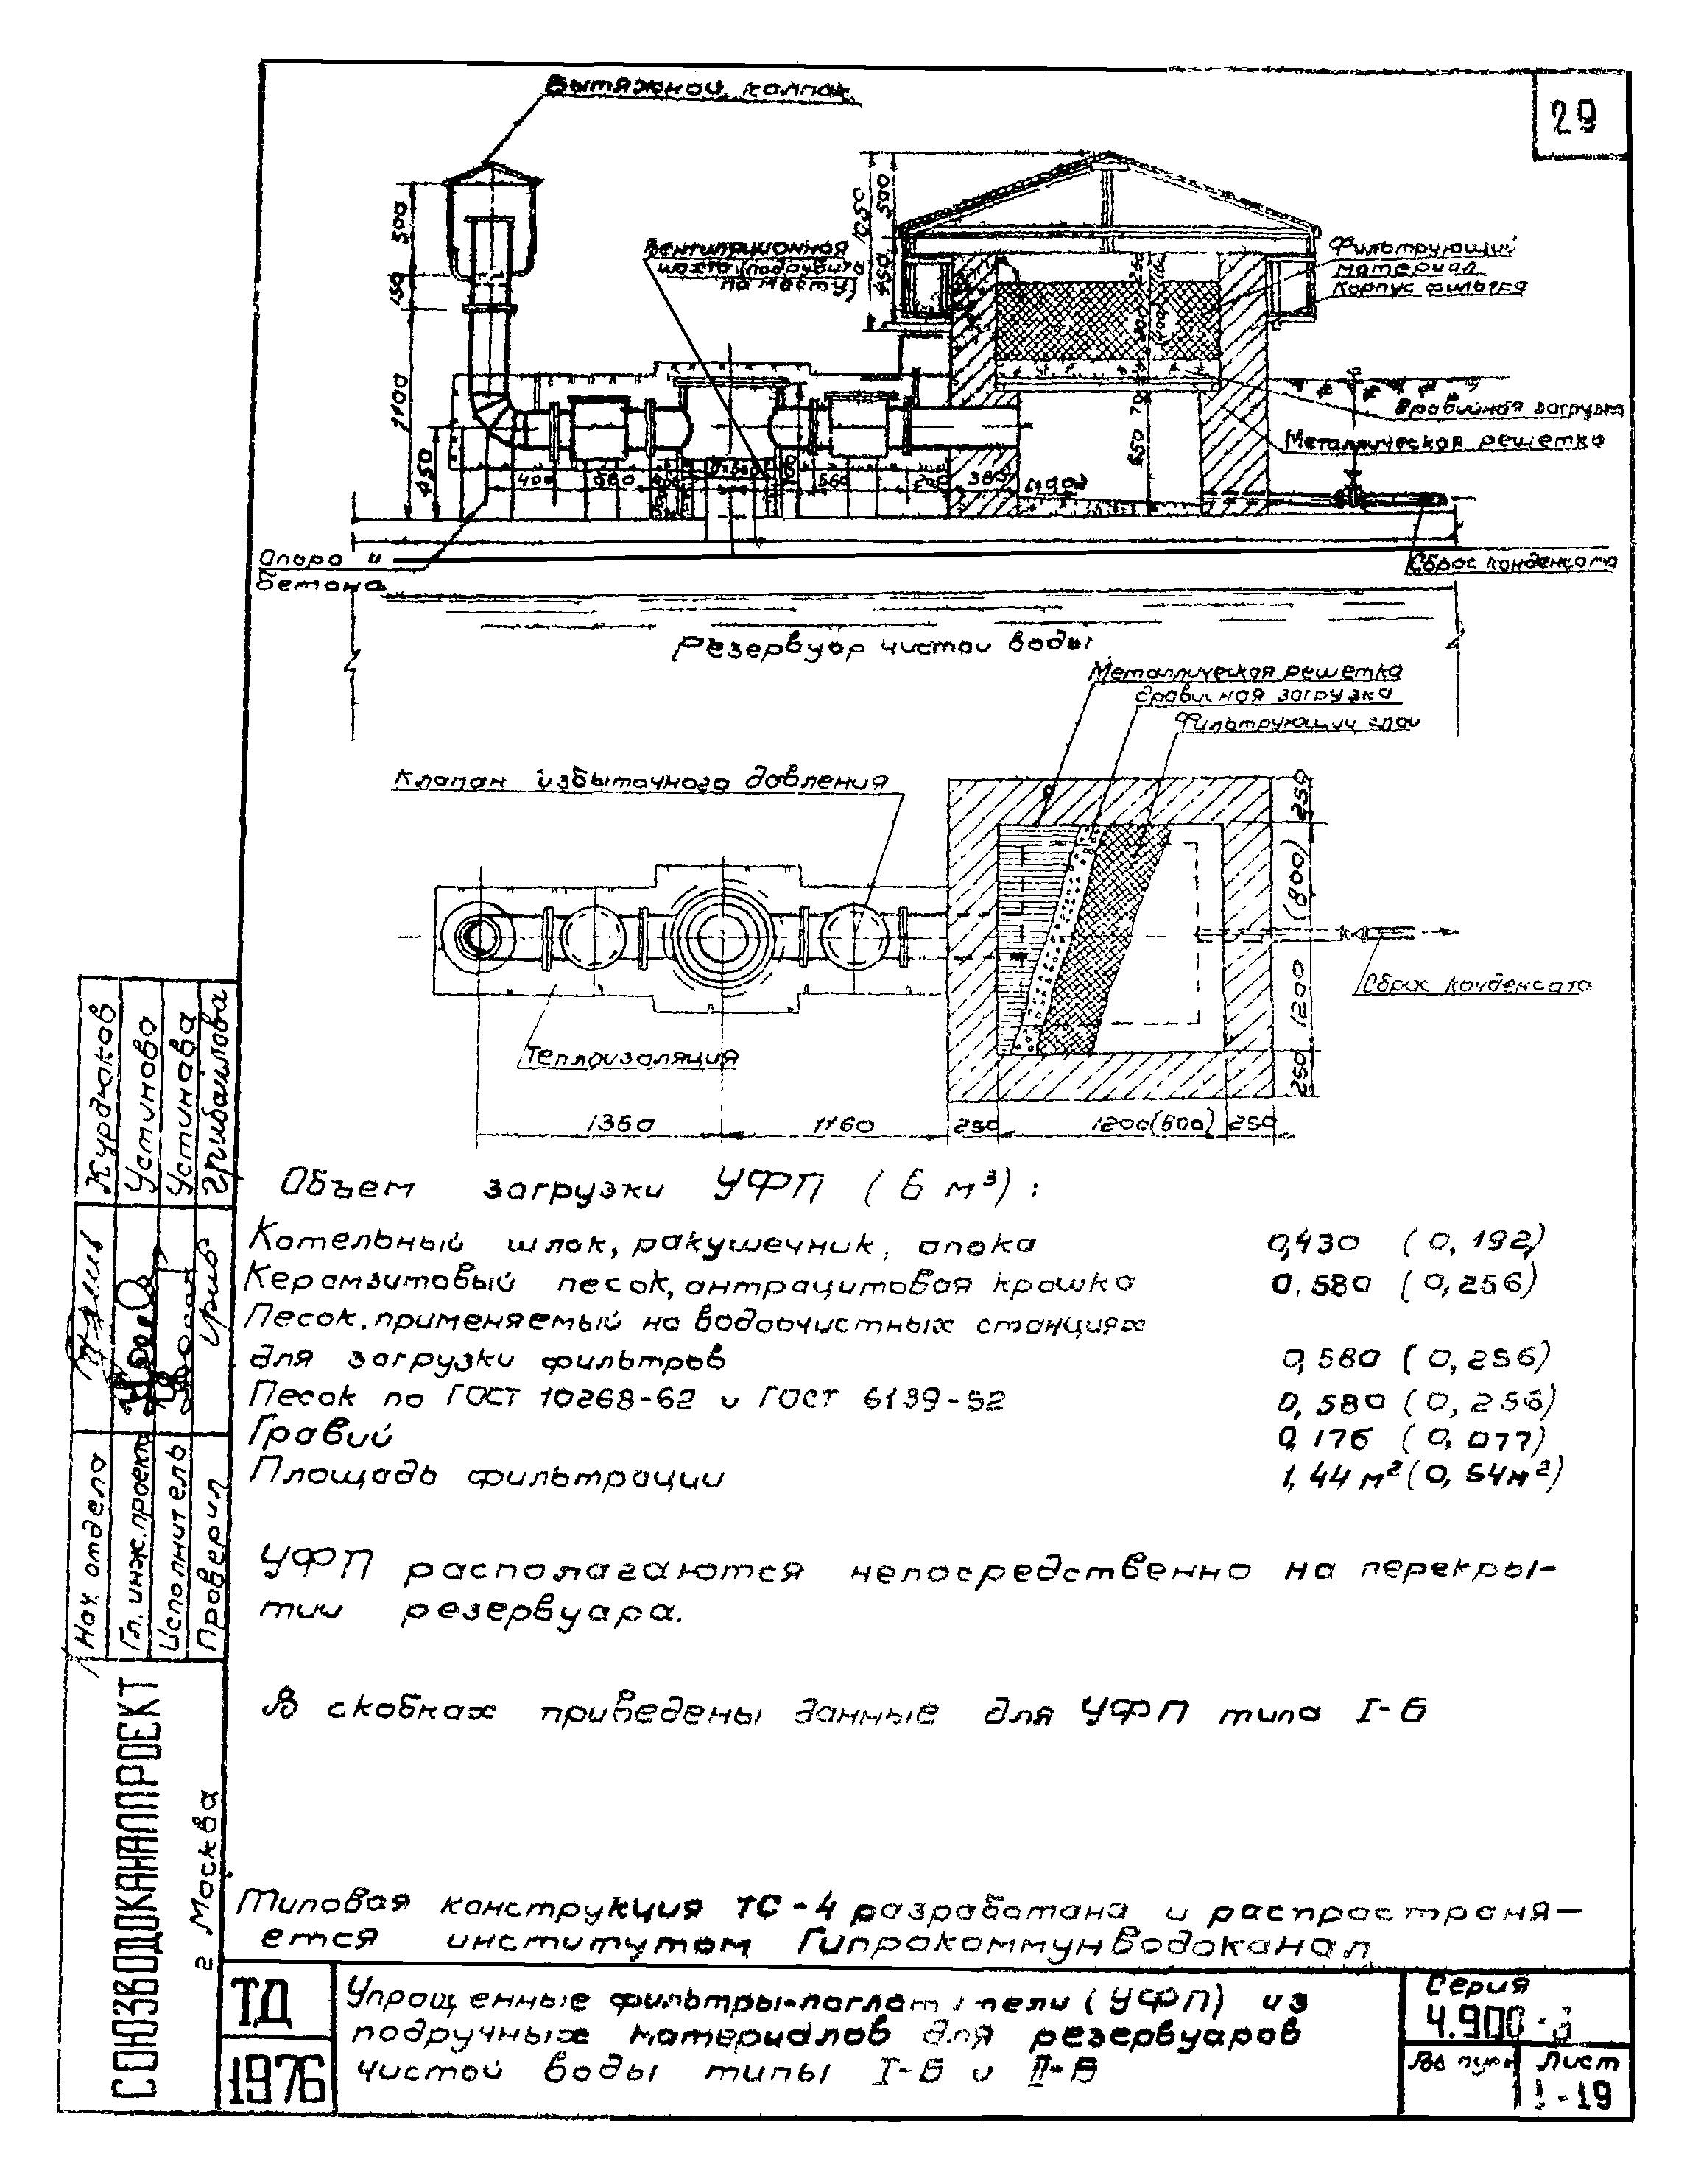 29
Вытяжной колпак
500
150
1100
450
Вентиляционная
шахта (подрубить
по месту)
1050
500
450
Фильтрующий
материал
Корпус фильтра
Гравийная загрузка
Металлическая решетка
650 70
400 560 560 200 380
Опора и
бетона
Сброс конденсата
Резервуор чистой воды
Металлическая решетка
Гравийная загрузка
Фильтрующий слой
Клапан избыточного давления
250
(800)
1200
250
Сброс конденсата
Теплоизоляция
1360 1160 250 1200(800) 250
Объем загрузки УФП (б м³):
Котельный шлак, ракушечник, опока 0,430 (0,192)
Керамзитовый песок, антрацитовая крошка 0,580 (0,256)
Песок, применяемый на водоочистных станциях
для загрузки фильтров 0,580 (0,256)
Песок по ГОСТ 10268-62 и ГОСТ 6139-52 0,580 (0,256)
Гравий 0,176 (0,077)
Площадь фильтрации 1,44 м² (0,54м²)
УФП располагаются непосредственно на перекры-
тии резервуара.
В скобках приведены данные для УФП типа I-Б
Типовая конструкция ТС-4 разработана и распространя-
ется институтом Гипрокоммунводоканал
ТД
1976
Упрощенные фильтры-поглотители (УФП) из
подручных материалов для резервуаров
чистой воды типы I-Б и II-В
Серия
4.900-3
Лист
1-19
Нач. отдела Курдюков
Гл. инж. проекта Устинова
Исполнитель Устинова
Проверил
СОЮЗВОДОКАНАЛПРОЕКТ
г Москва